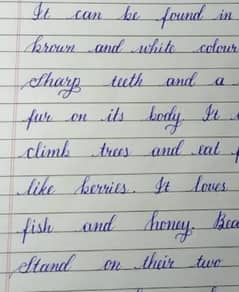 It can be found in
brown and white colour
Sharp teeth and a
fur on its body. It
climb trees and eat
like berries. It loves
fish and honey. Bea
Stand on their two